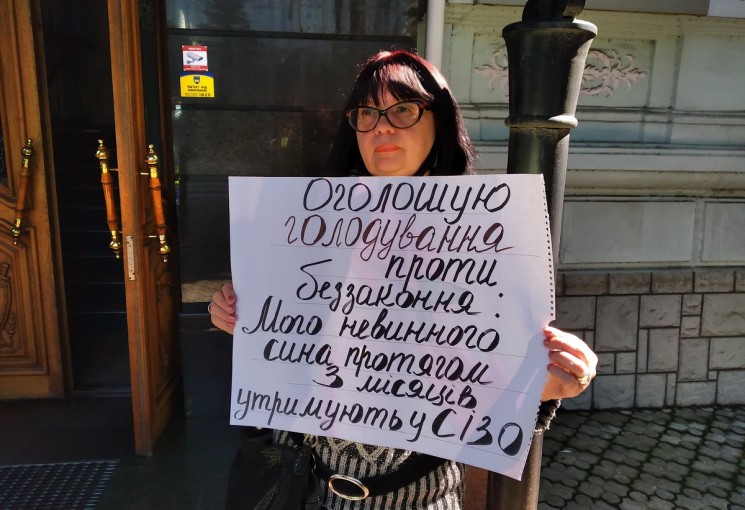 Оголошую
голодування
проти
беззаконня:
Мого невинного
сина протягом
3 місяців
утримують у СІЗО